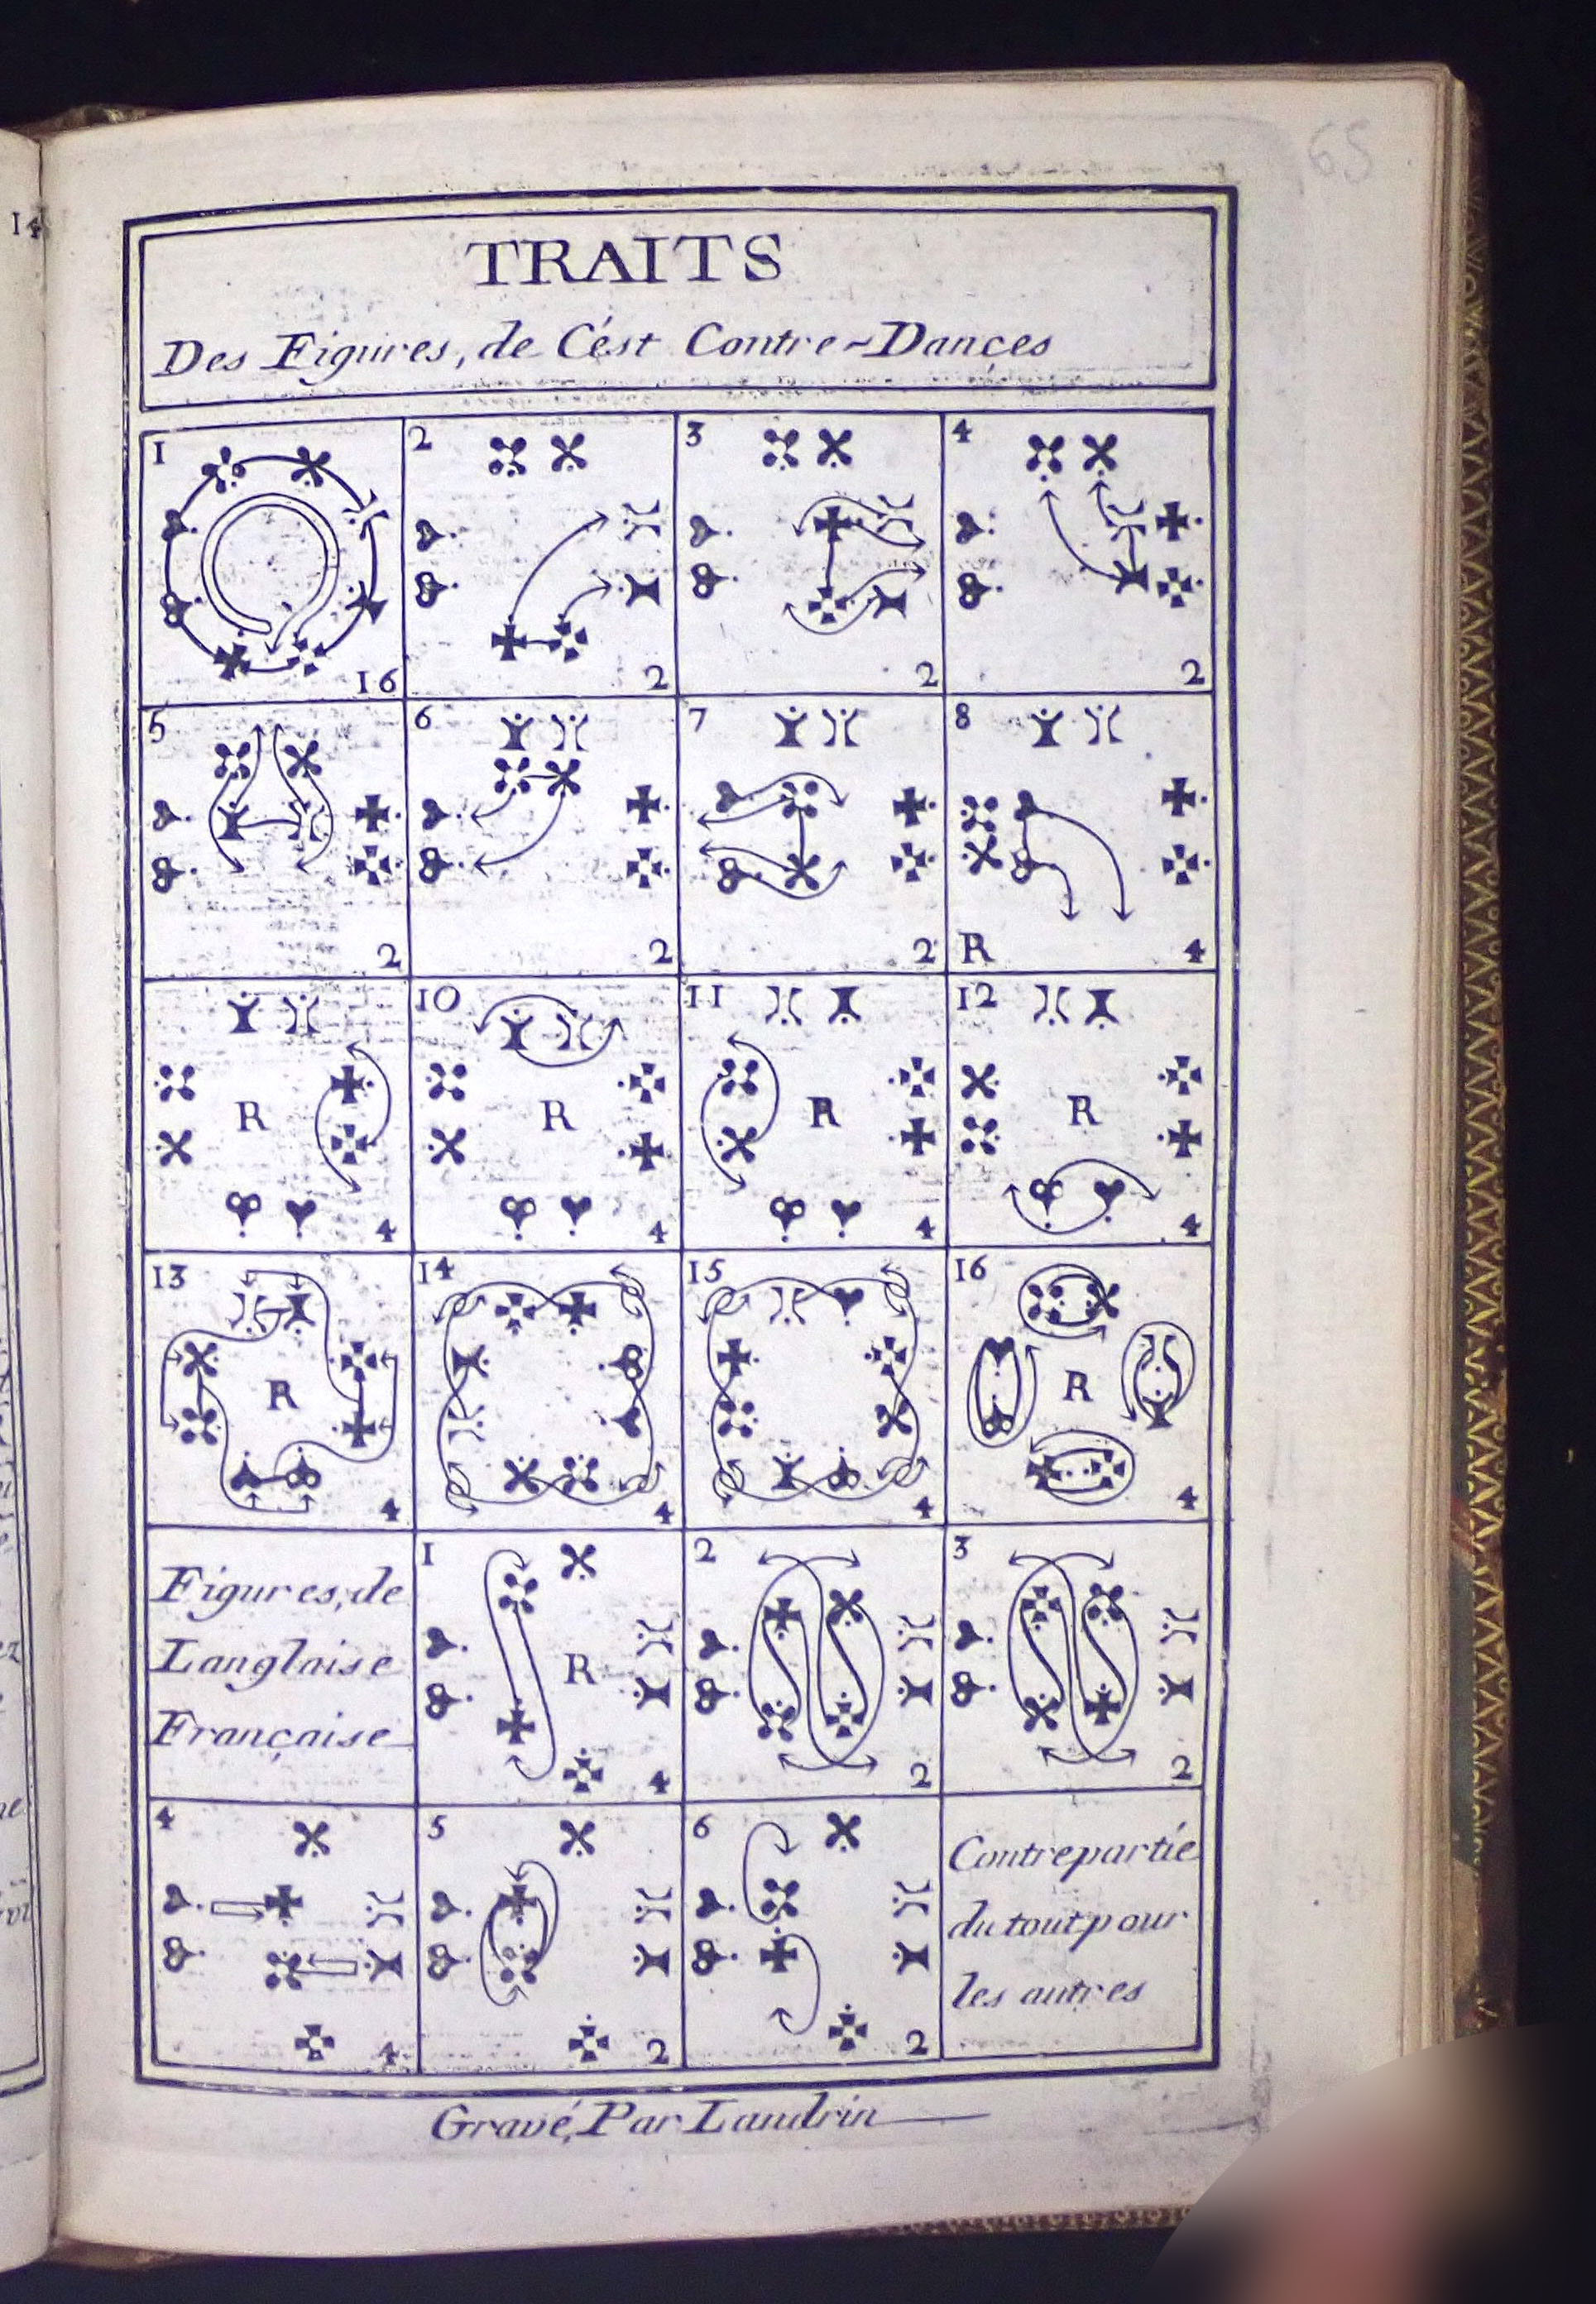 65
14
TRAITS
Des Figures, de Cést Contre-Dançes
1 2 3 4
16 2 2 2
5 6 7 8
2 2 2 R 4
10 11 12
R R R R
4 4 4 4
13 14 15 16
R R
4 4 4 4
Figures, de
Langlaise
Française
1 2 3
R
4 2 2
4 5 6
4 2 2
Contrepartie
du tout pour
les autres
Gravé, Par Landrin